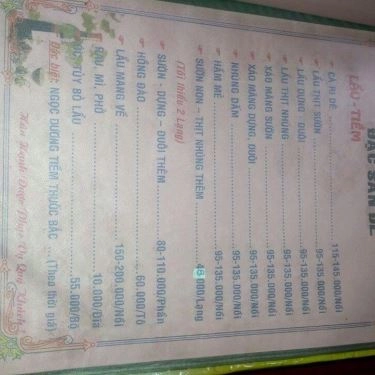 ĐẶC SẢN DÊ
LẨU - TIỀM
CÀ RI DÊ ............ 115-145.000/Nồi
LẨU THỊT SƯỜN ............ 95-135.000/Nồi
LẨU DỰNG, ĐUÔI ............ 95-135.000/Nồi
LẨU THỊT NHÚNG ............ 95-135.000/Nồi
XÁO MĂNG SƯỜN ............ 95-135.000/Nồi
XÁO MĂNG DỰNG, ĐUÔI ............ 95-135.000/Nồi
NHÚNG DẤM ............ 95-135.000/Nồi
HẦM MẺ ............ 95-135.000/Nồi
SƯỜN NON - THỊT NHÚNG THÊM ............ 46.000/Lạng
(Tối thiểu 2 Lạng)
SƯỜN - DỰNG - ĐUÔI THÊM ............ 80-110.000/Phần
HỒNG ĐÀO ............ 60.000/Tô
LẨU MANG VỀ ............ 150-200.000/Nồi
RAU, MÌ, PHỞ ............ 10.000/Dĩa
TỦY BỎ LẨU ............ 55.000/Bộ
Đặc biệt: NGỌC DƯƠNG TIỀM THUỐC BẮC ... (Theo thời giá)
Hân Hạnh Được Phục Vụ Quý Khách